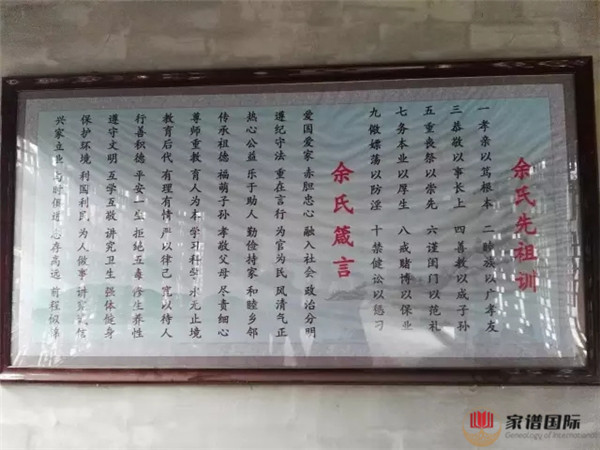 余氏先祖训
一 孝亲以笃根本 二 睦族以广孝友
三 恭敬以事长上 四 善教以成子孙
五 重丧祭以崇先 六 谨闺门以范礼
七 务本业以厚生 八 戒赌博以保业
九 儆嫖荡以防淫 十 禁健讼以惩习
余氏箴言
爱国爱家 赤胆忠心 融入社会 政治分明
遵纪守法 重在言行 为官为民 风清气正
热心公益 乐于助人 勤俭持家 和睦乡邻
传承祖德 福荫子孙 孝敬父母 尽责细心
尊师重教 育人为本 学习科学 永无止境
教育后代 有理有情 严以律己 宽以待人
行善积德 平安一生 拒绝五毒 修生养性
遵守文明 互学互敬 讲究卫生 强体健身
保护环境 利国利民 为人做事 讲究诚信
兴家立业 与时俱进 志存高远 前程似锦
家谱国际
Genealogy of International